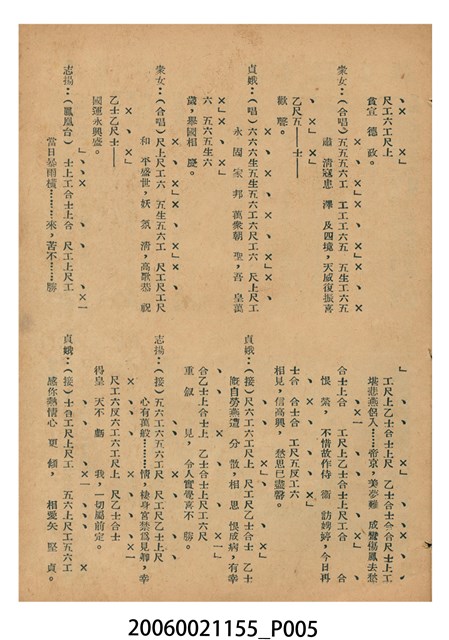 尺工六工尺上
貪宣德政。
衆女：（合唱）五五五六工　工工工六五　五生工六五
肅清寇患　澤及四境，天威復振喜
乙尺五——士——
歡聲。
貞娥：（唱）六六六五生五六工六　尺上尺工
永固家邦萬衆朝聖，吾皇萬
六　五六五生六
歲，舉國相慶。
衆女：（合唱）尺上尺工六　五生六工　尺工尺工尺
和平盛世，妖氛清，高歌恭祝
乙士乙尺士——
國運永興盛。
志揚：（鳳凰台）士上工合士上合　尺工上尺工
當日暴雨橫……來，苦不……勝
工尺上乙士合士上尺　乙士合士合尺士上工
堪悲燕侶入……帝京，美夢難成鸞傷鳳去愁
合士上合　工尺上乙士合士上　合　合
恨縈，不惜故作侍衛訪娉婷，今日再
士合　合士合　工尺五反工六
相見，信高興，愁思已盡罄。
貞娥：（接）尺六工六工尺上　尺工尺乙士合　乙士
廐自勞燕遭分散，相思恨成病，有幸
合乙士上合士上　乙士合士上尺工六尺
重敍見，令人實覺喜不勝。
志揚：（接）五六工六工尺　上尺　尺工尺工
心有萬般……情，棲身宮禁爲見卿，幸
尺工六反六工六工尺上　尺乙士合士
得皇天不虧我，一切屬前定。
貞娥：（接）士合工尺上尺工　五六上尺工五六工
感你熱情心更傾，相愛矢堅貞。
20060021155_P005